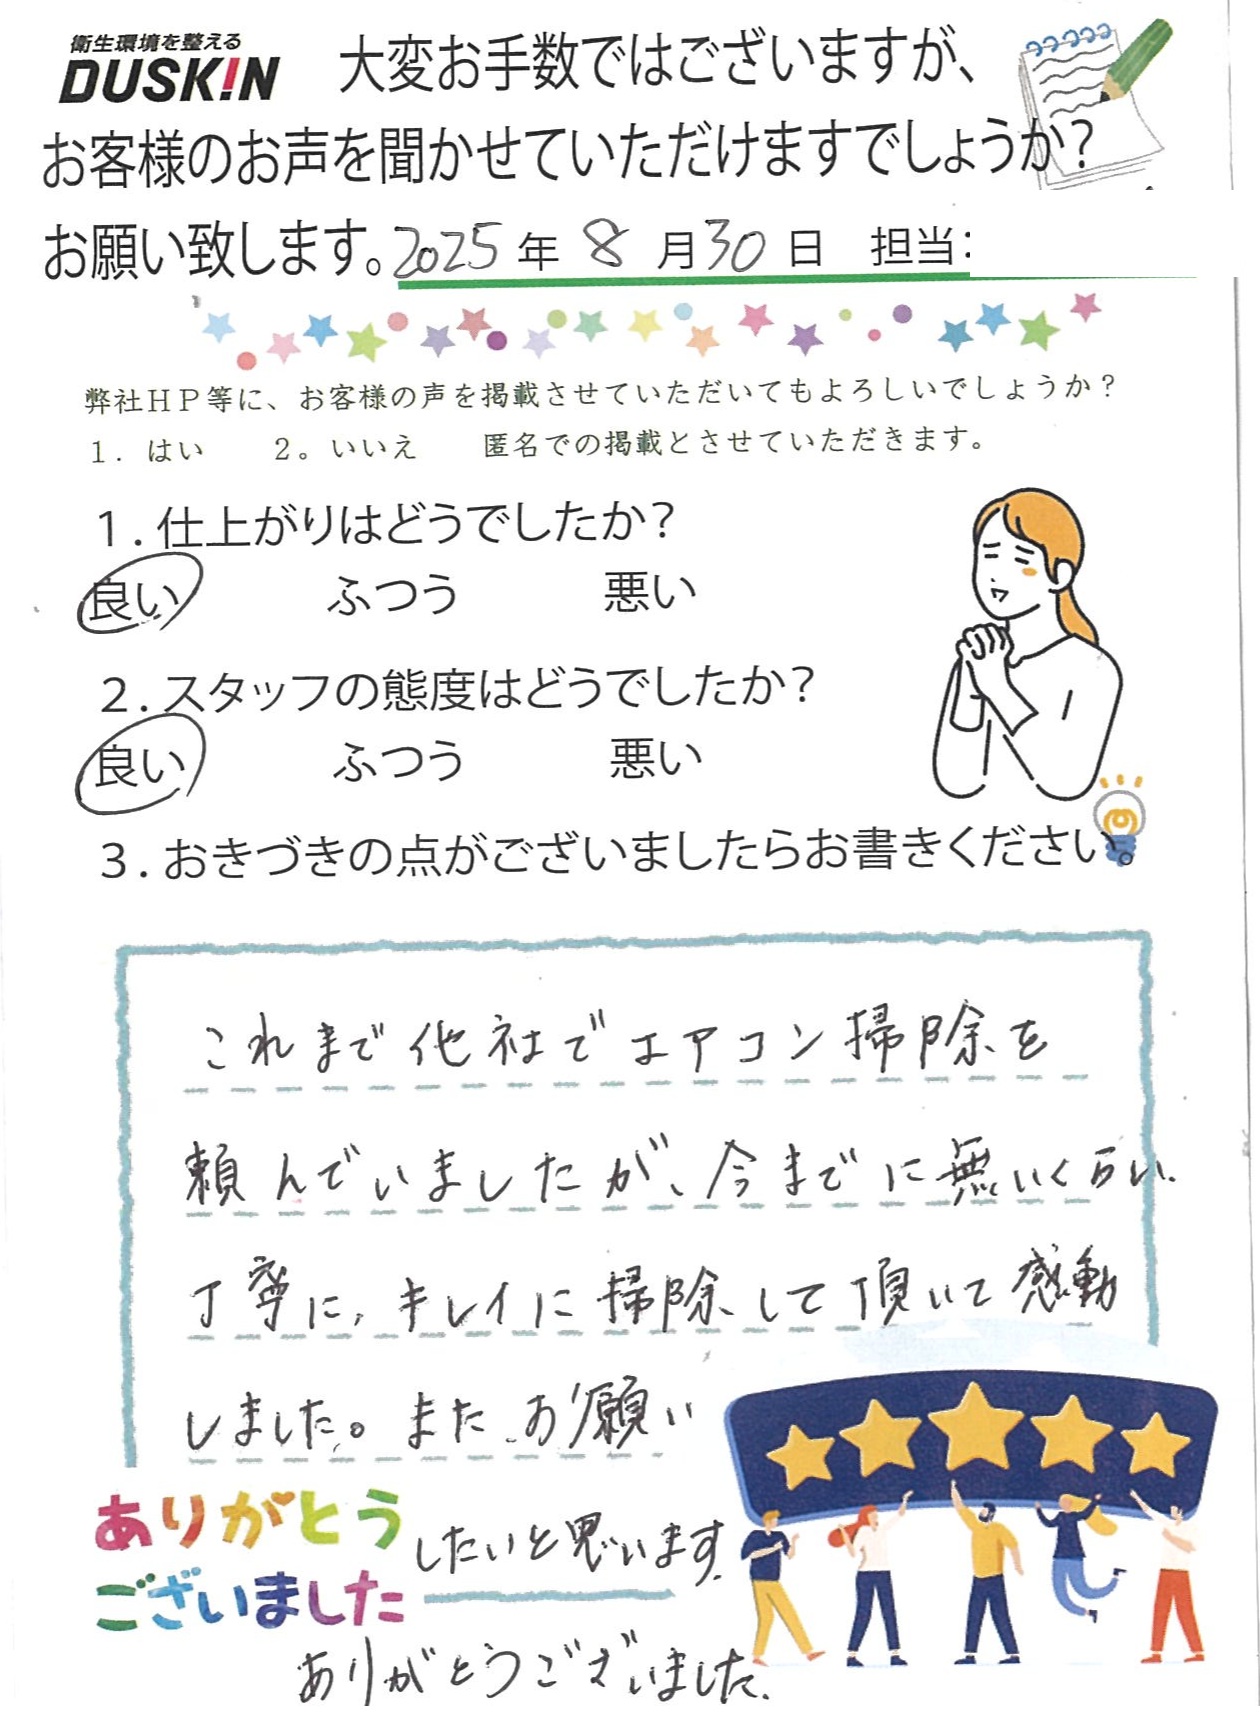 衛生環境を整える
DUSK!N
大変お手数ではございますが、
お客様のお声を聞かせていただけますでしょうか?
お願い致します。2025年 8月30日 担当:
弊社HP等に、お客様の声を掲載させていただいてもよろしいでしょうか?
1. はい 2。いいえ 匿名での掲載とさせていただきます。
1.仕上がりはどうでしたか?
良い ふつう 悪い
2.スタッフの態度はどうでしたか?
良い ふつう 悪い
3.おきづきの点がございましたらお書きください。
これまで他社でエアコン掃除を
頼んでいましたが、今までに無いくらい
丁寧に、キレイに掃除して頂いて感動
しました。またお願い
したいと思います。
ありがとう
ございました
ありがとうございました。